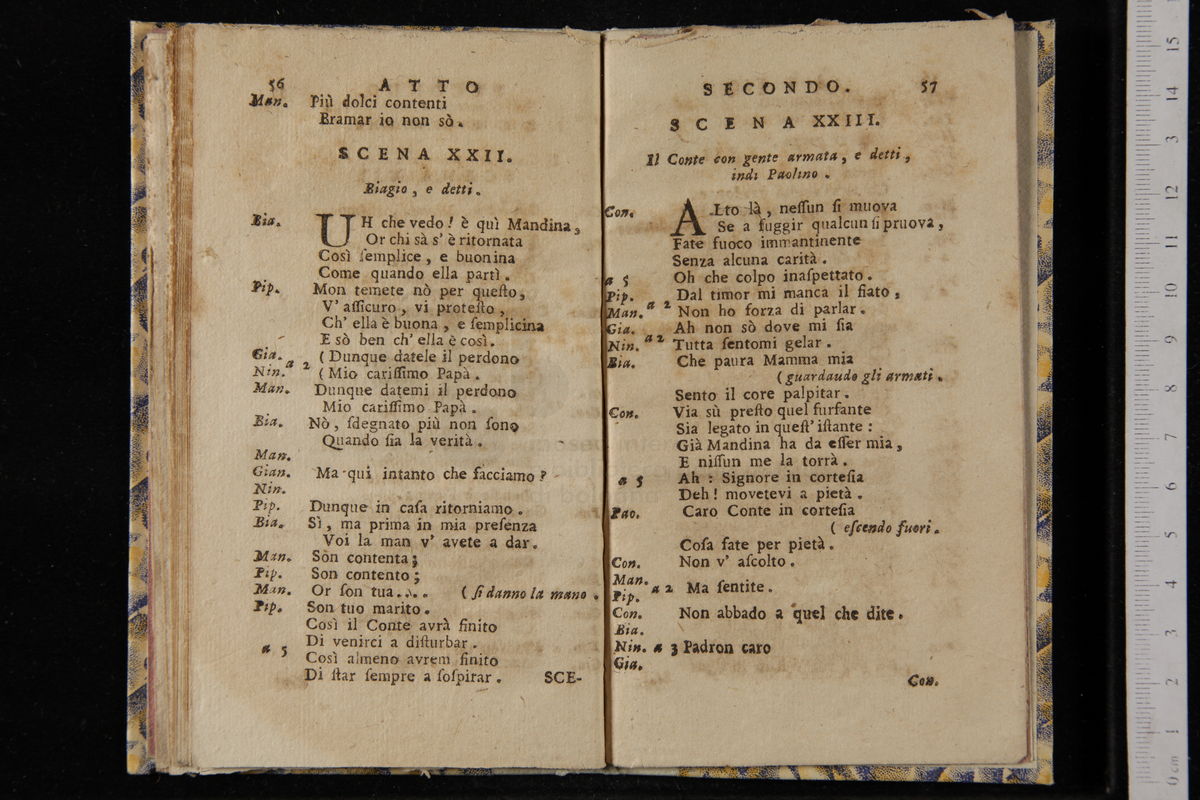 56 ATTO
Man. Più dolci contenti
Bramar io non sò.
SCENA XXII.
Biagio, e detti.
Bia. UH che vedo! è quì Mandina,
Or chi sà s' è ritornata
Così ſemplice, e buonina
Come quando ella partì.
Pip. Mon temete nò per queſto,
V' aſſicuro, vi proteſto,
Ch' ella è buona, e ſemplicina
E sò ben ch' ella è così.
Gia. a 2 ( Dunque datele il perdono
Nin. ( Mio cariſſimo Papà.
Man. Dunque datemi il perdono
Mio cariſſimo Papà.
Bia. Nò, ſdegnato più non ſono
Quando ſia la verità.
Man.
Gian. Ma qui intanto che facciamo?
Nin.
Pip. Dunque in caſa ritorniamo.
Bia. Sì, ma prima in mia preſenza
Voi la man v' avete a dar.
Man. Sòn contenta;
Pip. Son contento;
Man. Or ſon tua.... ( ſi danno la mano.
Pip. Son tuo marito.
Così il Conte avrà finito
Di venirci a diſturbar.
a 5 Così almeno avrem finito
Di ſtar ſempre a ſoſpirar. SCE-
SECONDO. 57
SCENA XXIII.
Il Conte con gente armata, e detti,
indi Paolino.
Con. ALto là, neſſun ſi muova
Se a fuggir qualcun ſi pruova,
Fate fuoco immantinente
Senza alcuna carità.
a 5 Oh che colpo inaſpettato.
Pip. Dal timor mi manca il fiato,
Man. a 2 Non ho forza di parlar.
Gia. Ah non sò dove mi ſia
Nin. a 2 Tutta ſentomi gelar.
Bia. Che paura Mamma mia
( guardaudo gli armati.
Sento il core palpitar.
Con. Via sù preſto quel furfante
Sia legato in queſt' iſtante:
Già Mandina ha da eſſer mia,
E niſſun me la torrà.
a 5 Ah: Signore in corteſia
Deh! movetevi a pietà.
Pao. Caro Conte in corteſia
( eſcendo fuori.
Coſa fate per pietà.
Con. Non v' aſcolto.
Man.
Pip. a 2 Ma ſentite.
Con. Non abbado a quel che dite.
Bia.
Nin. a 3 Padron caro
Gia.
Con.
15
14
13
12
11
10
9
8
7
6
5
4
3
2
1
0 cm